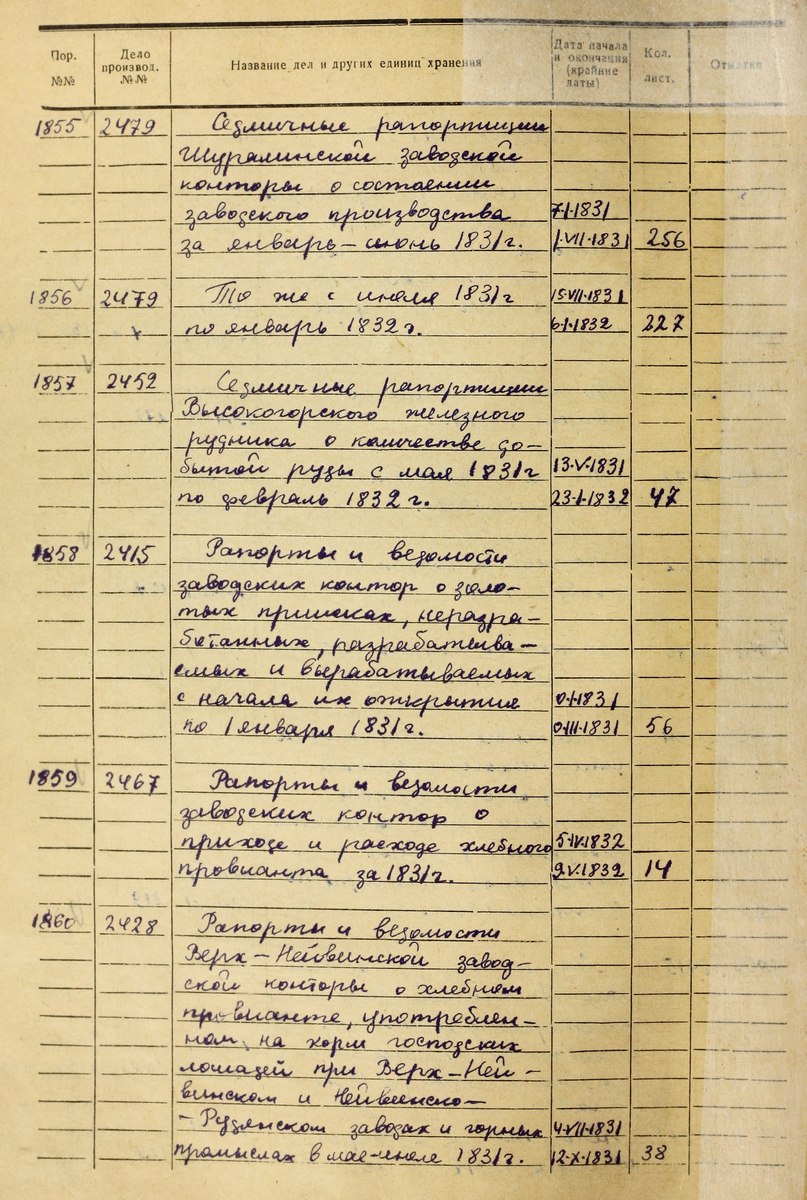 Пор. №№ Дело производ. №№ Название дел и других единиц хранения Дата начала и окончания (крайние даты) Кол. лист. Отметки
1855 2479 Седмичные рапортиции
Шуралинской заводской
конторы о состоянии
заводского производства 7·I·1831
за январь – июнь 1831 г. 1·VII·1831 256
1856 2479 То же с июля 1831 г 15·VII·1831
по январь 1832 г. 6·I·1832 227
1857 2452 Седмичные рапортиции
Высокогорского железного
рудника о количестве до-
бытой руды с мая 1831 г 13·V·1831
по февраль 1832 г. 23·I·1832 47
1858 2415 Рапорты и ведомости
заводских контор о золо-
тых приисках, неразра-
ботанных, разрабатыва-
емых и вырабатываемых
с начала их открытия 0·I·1831
по 1 января 1831 г. 0·III·1831 56
1859 2467 Рапорты и ведомости
заводских контор о
приходе и расходе хлебного 5·IV·1832
провианта за 1831 г. 9·V·1832 14
1860 2428 Рапорты и ведомости
Верх – Нейвинской завод-
ской конторы о хлебном
провианте, употреблен-
ном на корм господских
лошадей при Верх – Ней-
винском и Нейвинско-
- Рудянском заводах и горных 4·VII·1831
промыслах в мае-июле 1831 г. 12·X·1831 38